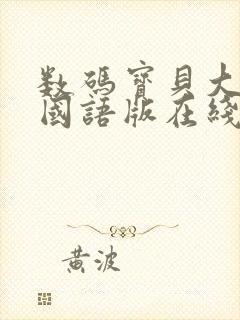 数碼寶貝大
國語版在綫
黃波